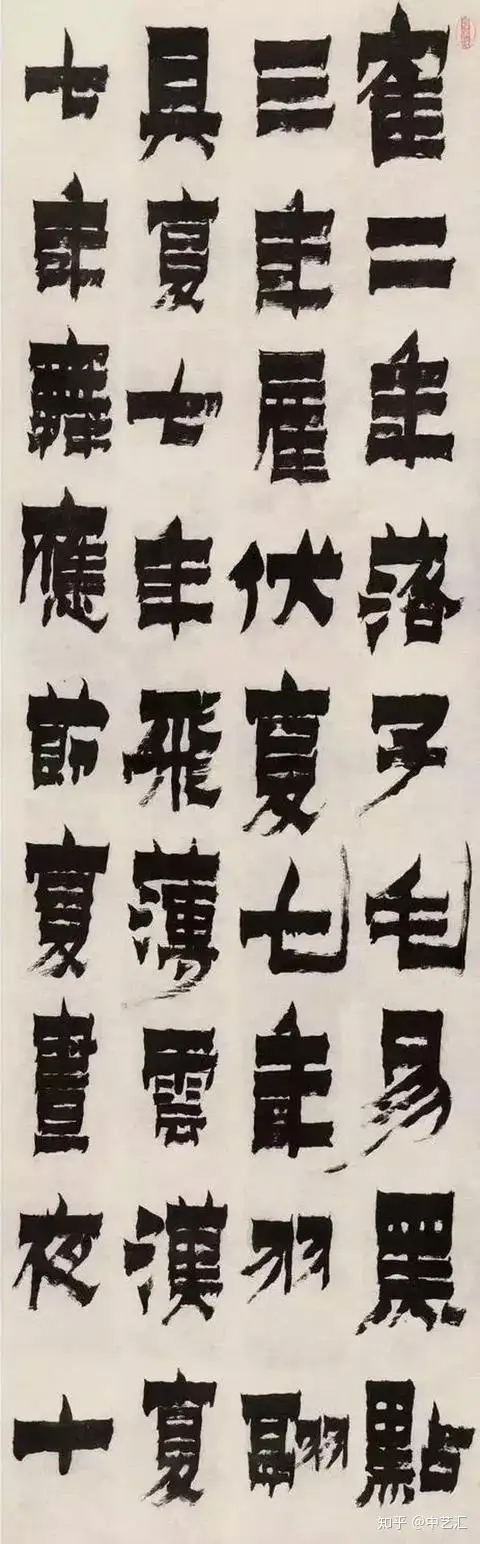 寉二年落子毛易黑點
三年伏夏七年羽翮
具夏七年飛薄雲漢夏
七年舞應節夏晝夜十
知乎 @中艺汇